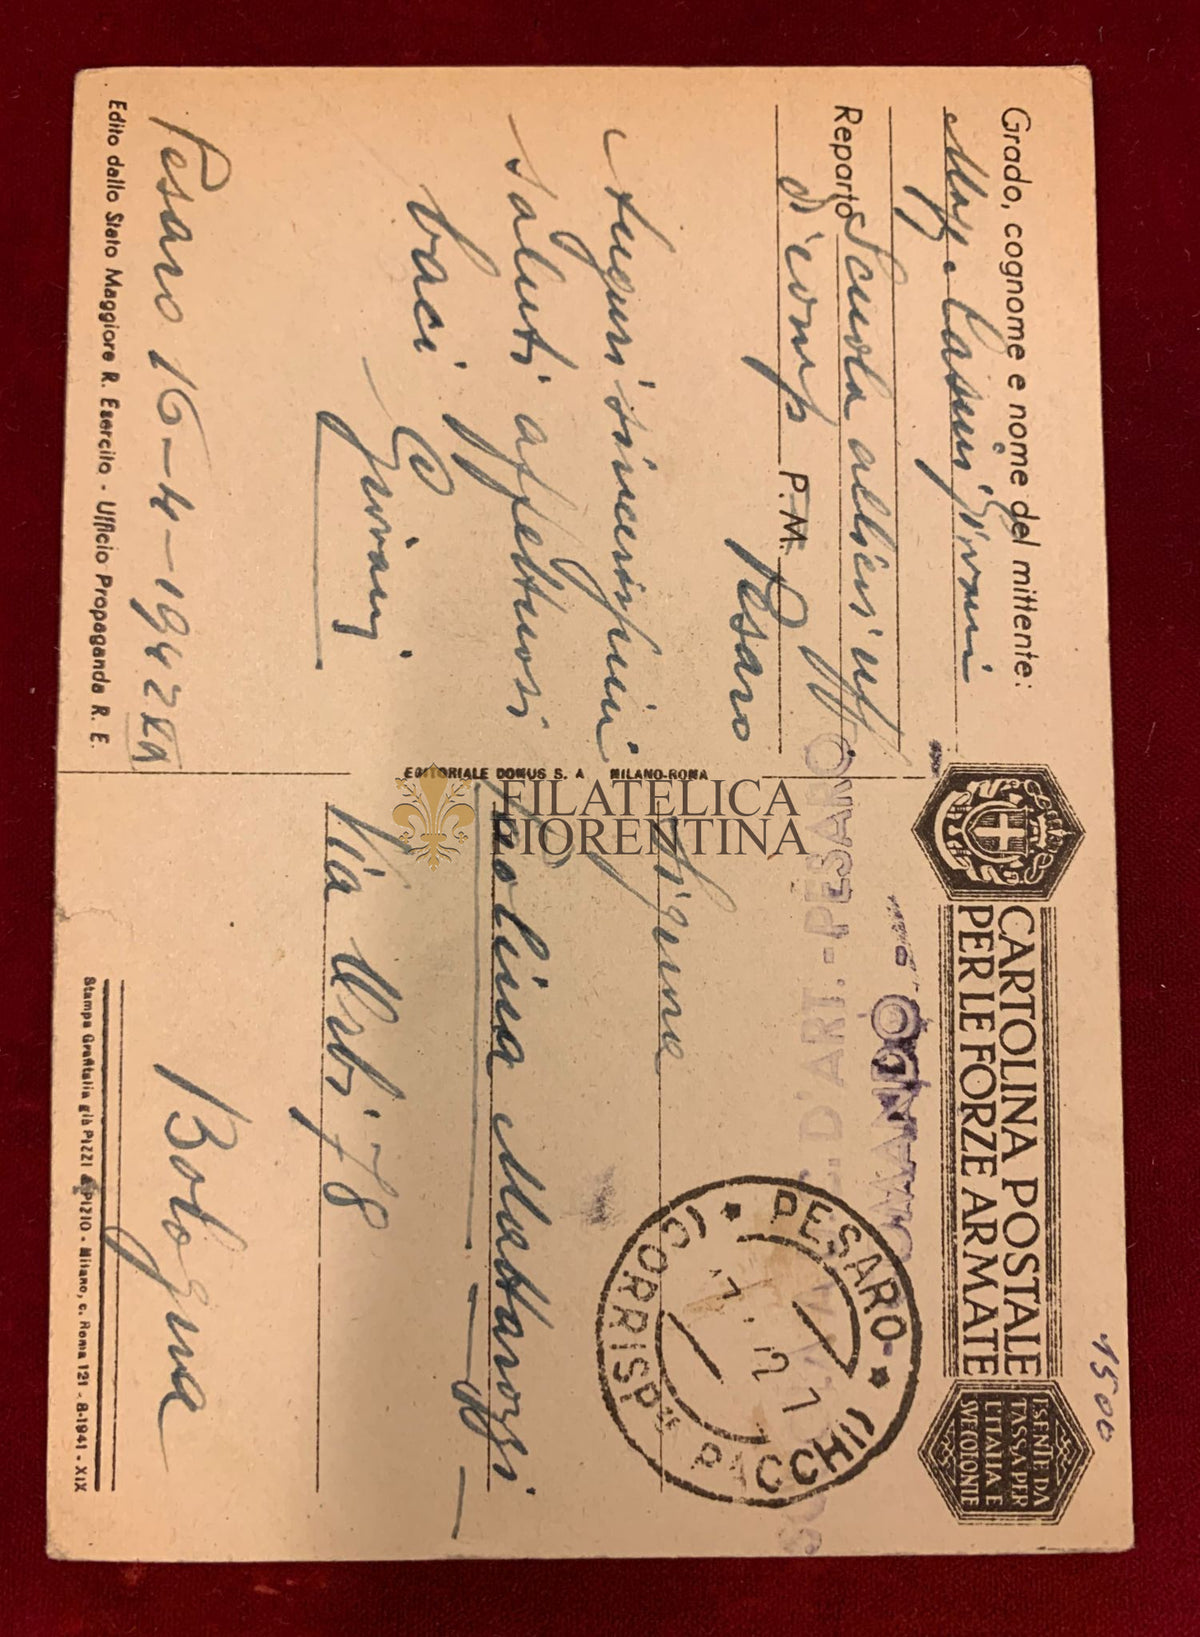 Grado, cognome e nome del mittente:
Reparto Scuola allievi uff
di comp P. M. Pesaro
Auguri sincerissimi
saluti affettuosi
baci
Pesaro 16-4-1942
Edito dallo Stato Maggiore R. Esercito - Ufficio Propaganda R. E.
EDITORIALE DOMUS S. A. MILANO-ROMA
CARTOLINA POSTALE
PER LE FORZE ARMATE
ESENTE DA
TASSA PER
L'ITALIA E
SUE COLONIE
1500
COMANDO
D'ART. - PESARO
PESARO
CORRISP. PACCHI
Paolina Mattarozzi
Via Urbi 78
Bologna
Stampa Grafitalia già PIZZI & PIZIO - Milano, c. Roma 121 - 8-1941 - XIX
FILATELICA
FIORENTINA